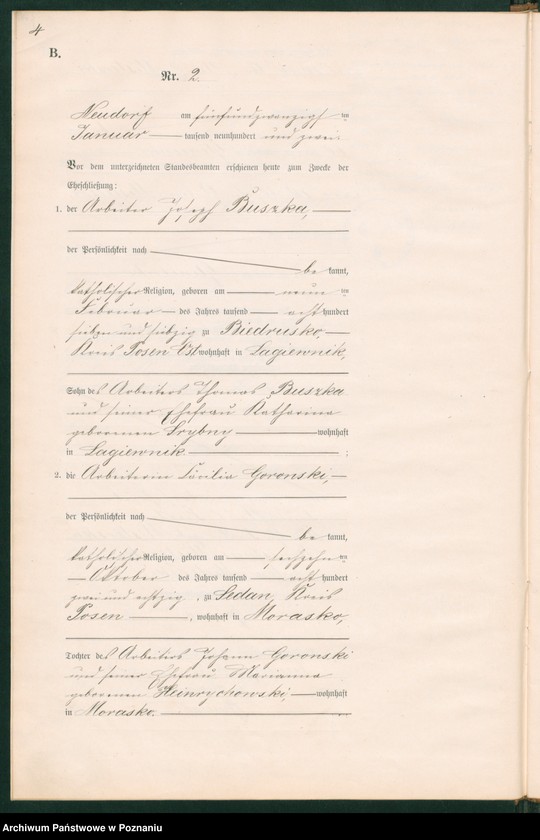 4
B.
Nr. 2.
Neudorf am fünfundzwanzigsten
Januar tausend neunhundert und zwei.
Vor dem unterzeichneten Standesbeamten erschienen heute zum Zwecke der
Eheschließung:
1. der Arbeiter Joseph Buszka,
der Persönlichkeit nach
be kannt,
katholischer Religion, geboren am neun ten
Februar des Jahres tausend acht hundert
sieben und siebzig zu Biedrusko,
Kreis Posen Ost wohnhaft in Lagiewnik,
Sohn des Arbeiters Thomas Buszka
und seiner Ehefrau Katharina
geborenen Srybny wohnhaft
in Lagiewnik ;
2. die Arbeiterin Cäcilia Goronski,
der Persönlichkeit nach
be kannt,
katholischer Religion, geboren am sechzehn ten
Oktober des Jahres tausend acht hundert
zwei und achtzig , zu Sedan, Kreis
Posen , wohnhaft in Morasko,
Tochter des Arbeiters Johann Goronski
und seiner Ehefrau Marianna
geborenen wohnhaft
in Morasko.
Archiwum Państwowe w Poznaniu